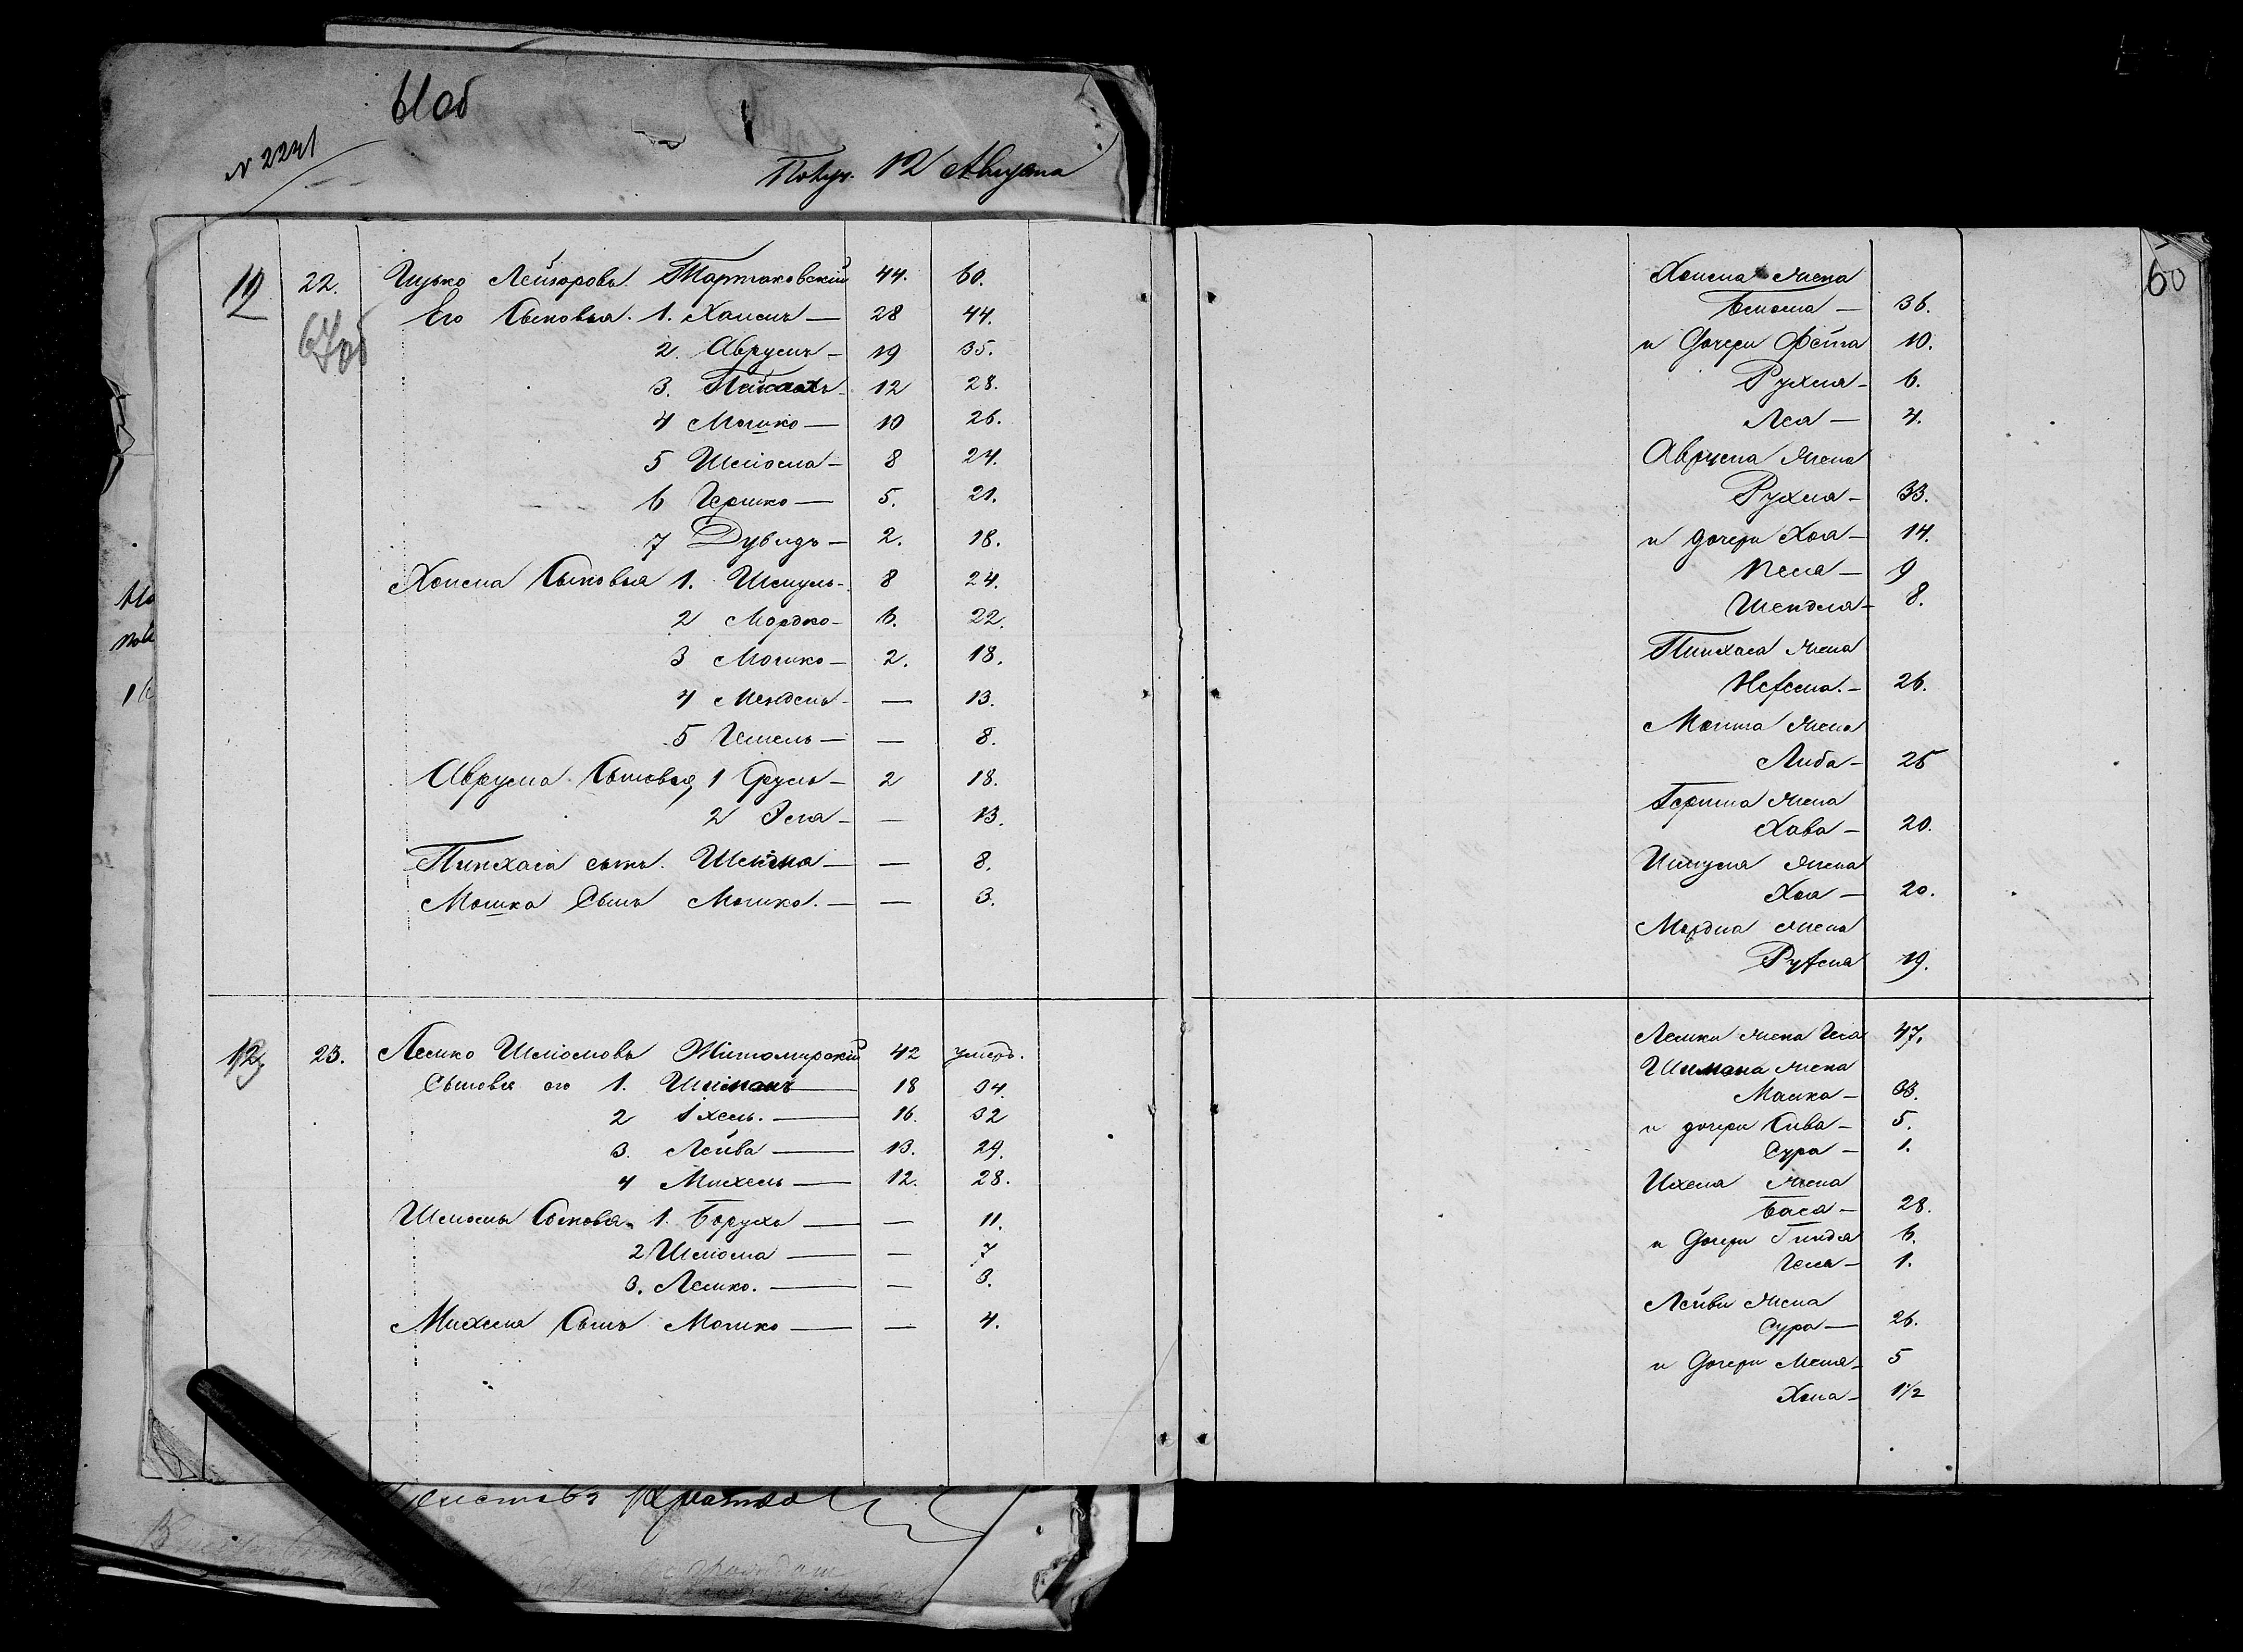 61об
N 2241
Получ. 12 Августа
12 22. Ицько Лейзоровъ Тартаковскій 44. 60.
Его Сыновья. 1. Хаимъ — 28 44.
2. Аврумъ — 19 35.
3. Пинхасъ — 12 28.
4 Мошко — 10 26.
5 Шліома — 8 24.
6 Гершко — 5. 21.
7 Дувидъ — 2. 18.
Хаима Сыновья 1. Шмуль — 8 24.
2 Мордко — 6. 22.
3 Мошко — 2. 18.
4 Мендель — — 13.
5 — — 8.
Аврума Сыновья 1 Сруль — 2 18.
2 — — 13.
Пинхаса сынъ Шліома — — 8.
Мошка Сынъ Мошко. — — 3.
13 23. Лемко Шліомовъ Житомирскій 42 умеръ.
Сыновья его 1. Шліманъ — 18 34.
2 Ихель. — 16. 32
3. Лейба — 13. 29.
4 Михель — 12. 28.
Сыновья 1. Борухъ — — 11.
2 Шліома — — 7
3. Лемко. — — 3.
Михеля Сынъ Мошко — — 4.
60
Хаима жена
— 36.
и Дочери Фейга 10.
Рухля — 6.
Лея — 4.
Аврума жена
Рухля — 33.
и дочери Хая — 14.
— 9
Шендля — 8.
Пинхаса жена
Нехема. — 26.
Мошка жена
Либа — 25
Гершка жена
Хава — 20.
Шмуля жена
Хая — 20.
Мордка жена
Рухля 19.
Лемки жена 47.
Шимана жена
Малка — 33.
и дочери Сива — 5.
Сура — 1.
Ихеля жена
Бася — 28.
и Дочери Гиндя 6.
— 1.
Лейбы жена
Сура — 26.
и Дочери — 5
Хана — 1½